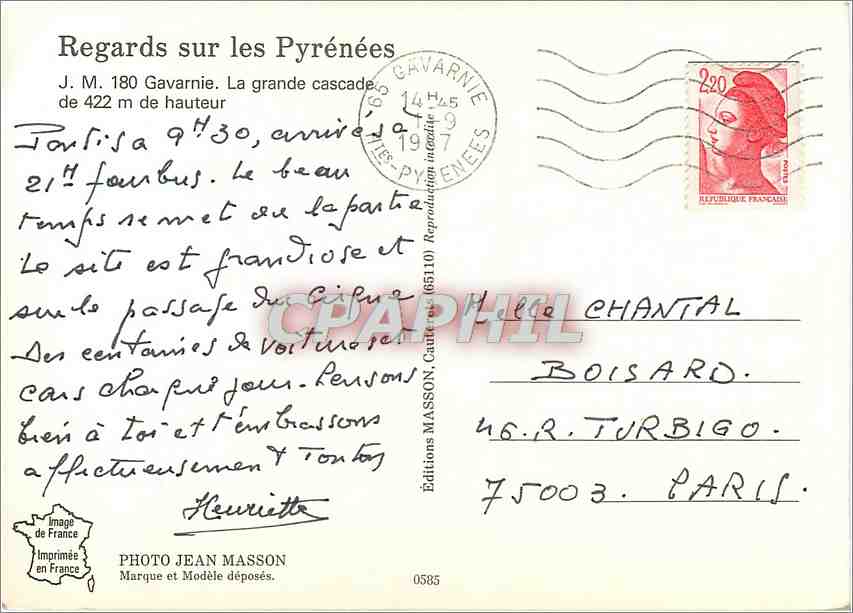 Regards sur les Pyrénées
J. M. 180 Gavarnie. La grande cascade
de 422 m de hauteur
Partis à 9H30, arrivés à
21H fourbus. Le beau
temps se met de la partie
Le site est grandiose et
sur le passage du Cirque
Des centaines de voitures et
cars chaque jour. Pensons
bien à toi et t'embrassons
affectueusement Tonton
Henriette
Image
de France
Imprimée
en France
PHOTO JEAN MASSON
Marque et Modèle déposés.
0585
Éditions MASSON, Cauterets (65110) Reproduction interdite
65 GAVARNIE
14H45
1-9
1987
HTES-PYRENEES
2,20
POSTES
REPUBLIQUE FRANÇAISE
CPAPHIL
Melle CHANTAL
BOISARD.
46. R. TURBIGO.
75003. PARIS.